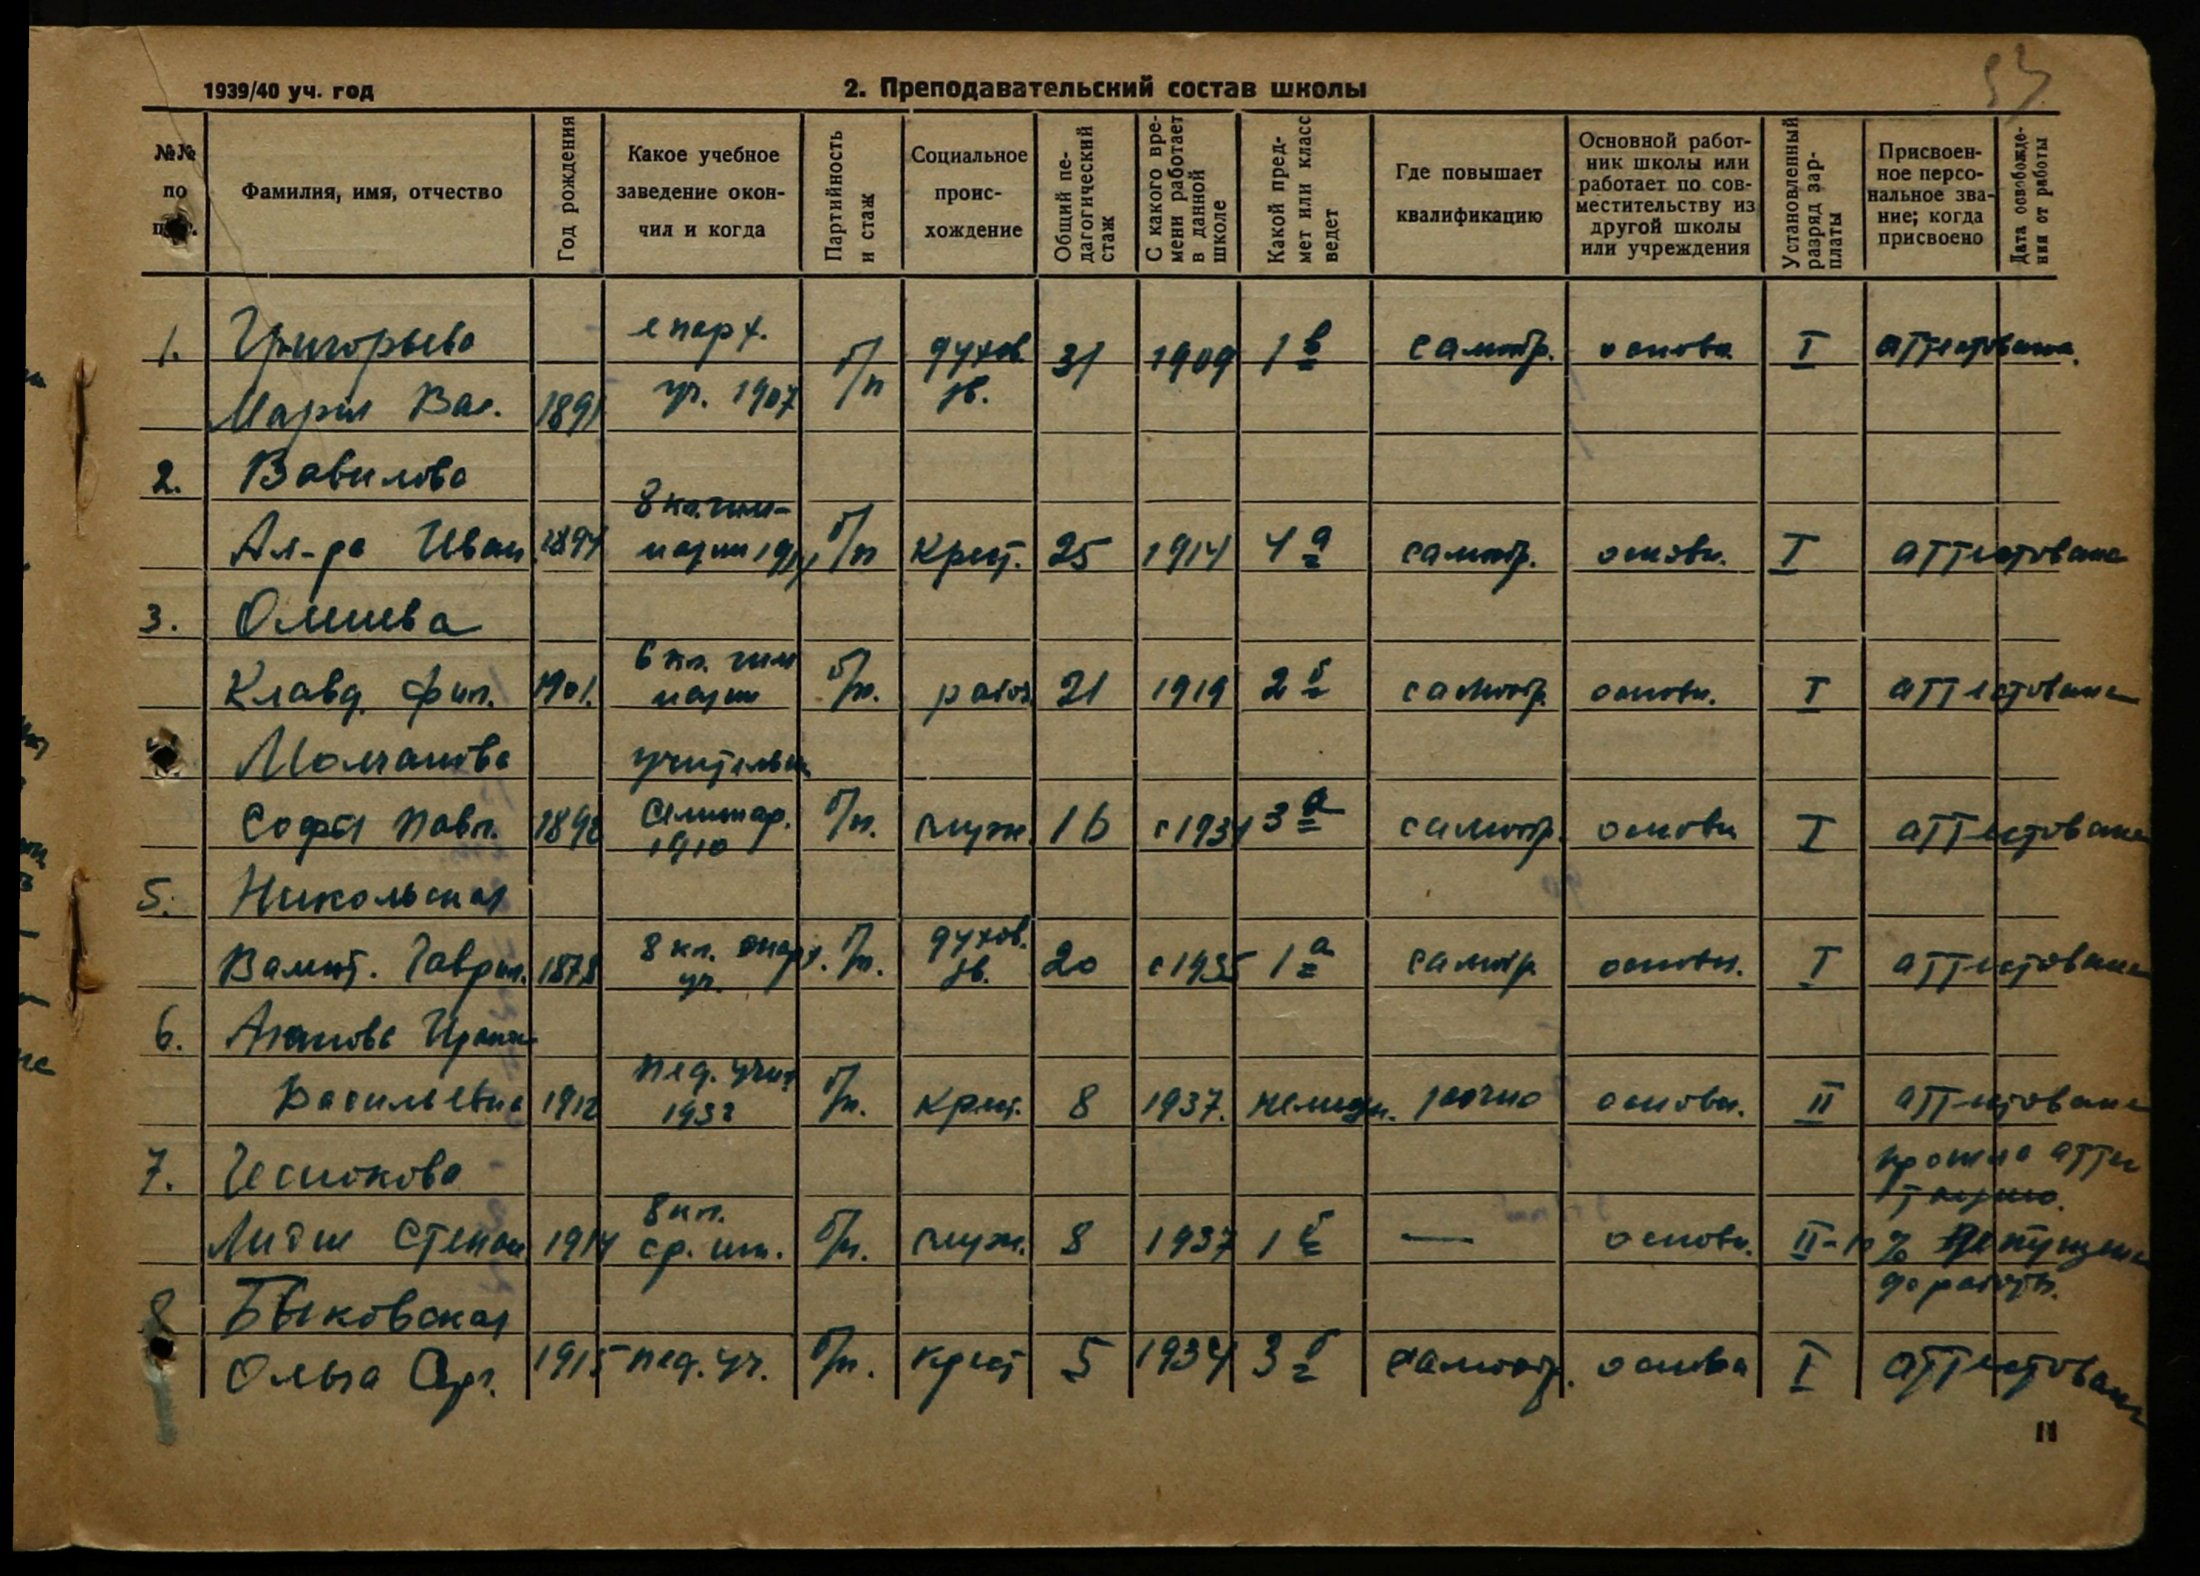 53
1939/40 уч. год
2. Преподавательский состав школы
№№ по п/п.
Фамилия, имя, отчество
Год рождения
Какое учебное заведение окончил и когда
Партийность и стаж
Социальное происхождение
Общий педагогический стаж
С какого времени работает в данной школе
Какой предмет или класс ведет
Где повышает квалификацию
Основной работник школы или работает по совместительству из другой школы или учреждения
Установленный разряд зарплаты
Присвоенное персональное звание; когда присвоено
Дата освобождения от работы
1. Григорьева епарх. б/п духов. 31 1909 1 в самообр. основн. I аттестована.
Мария Вас. 1891 уч. 1907 зв.
2. Вавилова 8 кл. гим-
Ал-ра Иван. 1894 назии б/п Крест. 25 1914 4 а самообр. основн. I аттестована
3. Олиева 6 кл. гим
Клавд. Фил. 1901. назии б/п. рабоч. 21 1919 2 б самообр. основн. I аттестована
Молчанова учительск
Софья Павл. Семинар. б/п. служ. 16 с 1931 3 а самообр. основн I аттестована
1910
5. Никольская
Валент. Гаврил. 1878 8 кл. епарх. б/п. духов. 20 с 1935 1 а самообр основн. I аттестована
уч. зв.
6. Ирина пед. учил
Васильевна 1912 1932 б/п. Крест. 8 1937. немецк. заочно основн. II аттестована
7. Чеснокова прошла аттес
8 кл. тацию.
Лидия Степан 1914 ср. шк. б/п. служ. 8 1937 1 б — основн. II-10% Допущена
до работы.
8 Быковская
Ольга Серг. 1915 пед. уч. б/п. Крест 5 1934 3 б самообр. основн I аттестована
11